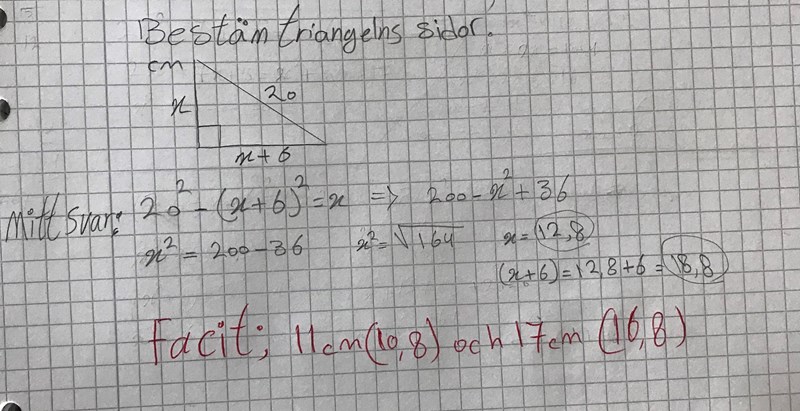 Bestäm triangelns sidor.
cm
x
20
x+6
Mitt svar: 20² - (x+6)² = x => 200 - x² + 36
x² = 200 - 36 x² = √164 x = 12,8
(x+6) = 12,8 + 6 = 18,8
Facit; 11cm (10,8) och 17cm (16,8)